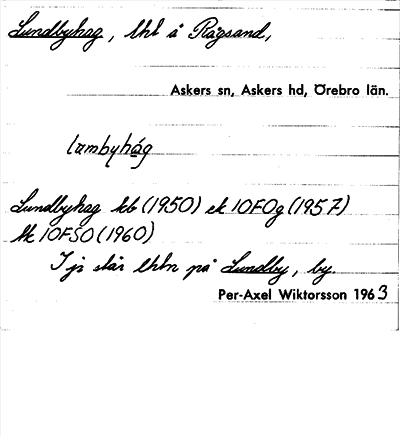 Lundbyhag, lht å Rågsand,
Askers sn, Askers hd, Örebro län.
læmbyhág
Lundbyhag kb (1950) ek 10FOg (1957)
tk 10FSO (1960)
I js står lhtn på Lundby, by.
Per-Axel Wiktorsson 1963